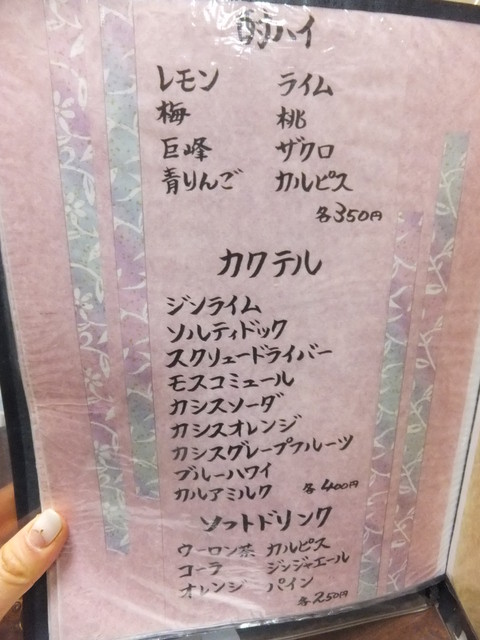 酎ハイ
レモン ライム
梅 桃
巨峰 ザクロ
青りんご カルピス
各350円
カクテル
ジンライム
ソルティドック
スクリュードライバー
モスコミュール
カシスソーダ
カシスオレンジ
カシスグレープフルーツ
ブルーハワイ
カルアミルク 各400円
ソフトドリンク
ウーロン茶 カルピス
コーラ ジンジャエール
オレンジ パイン
各250円